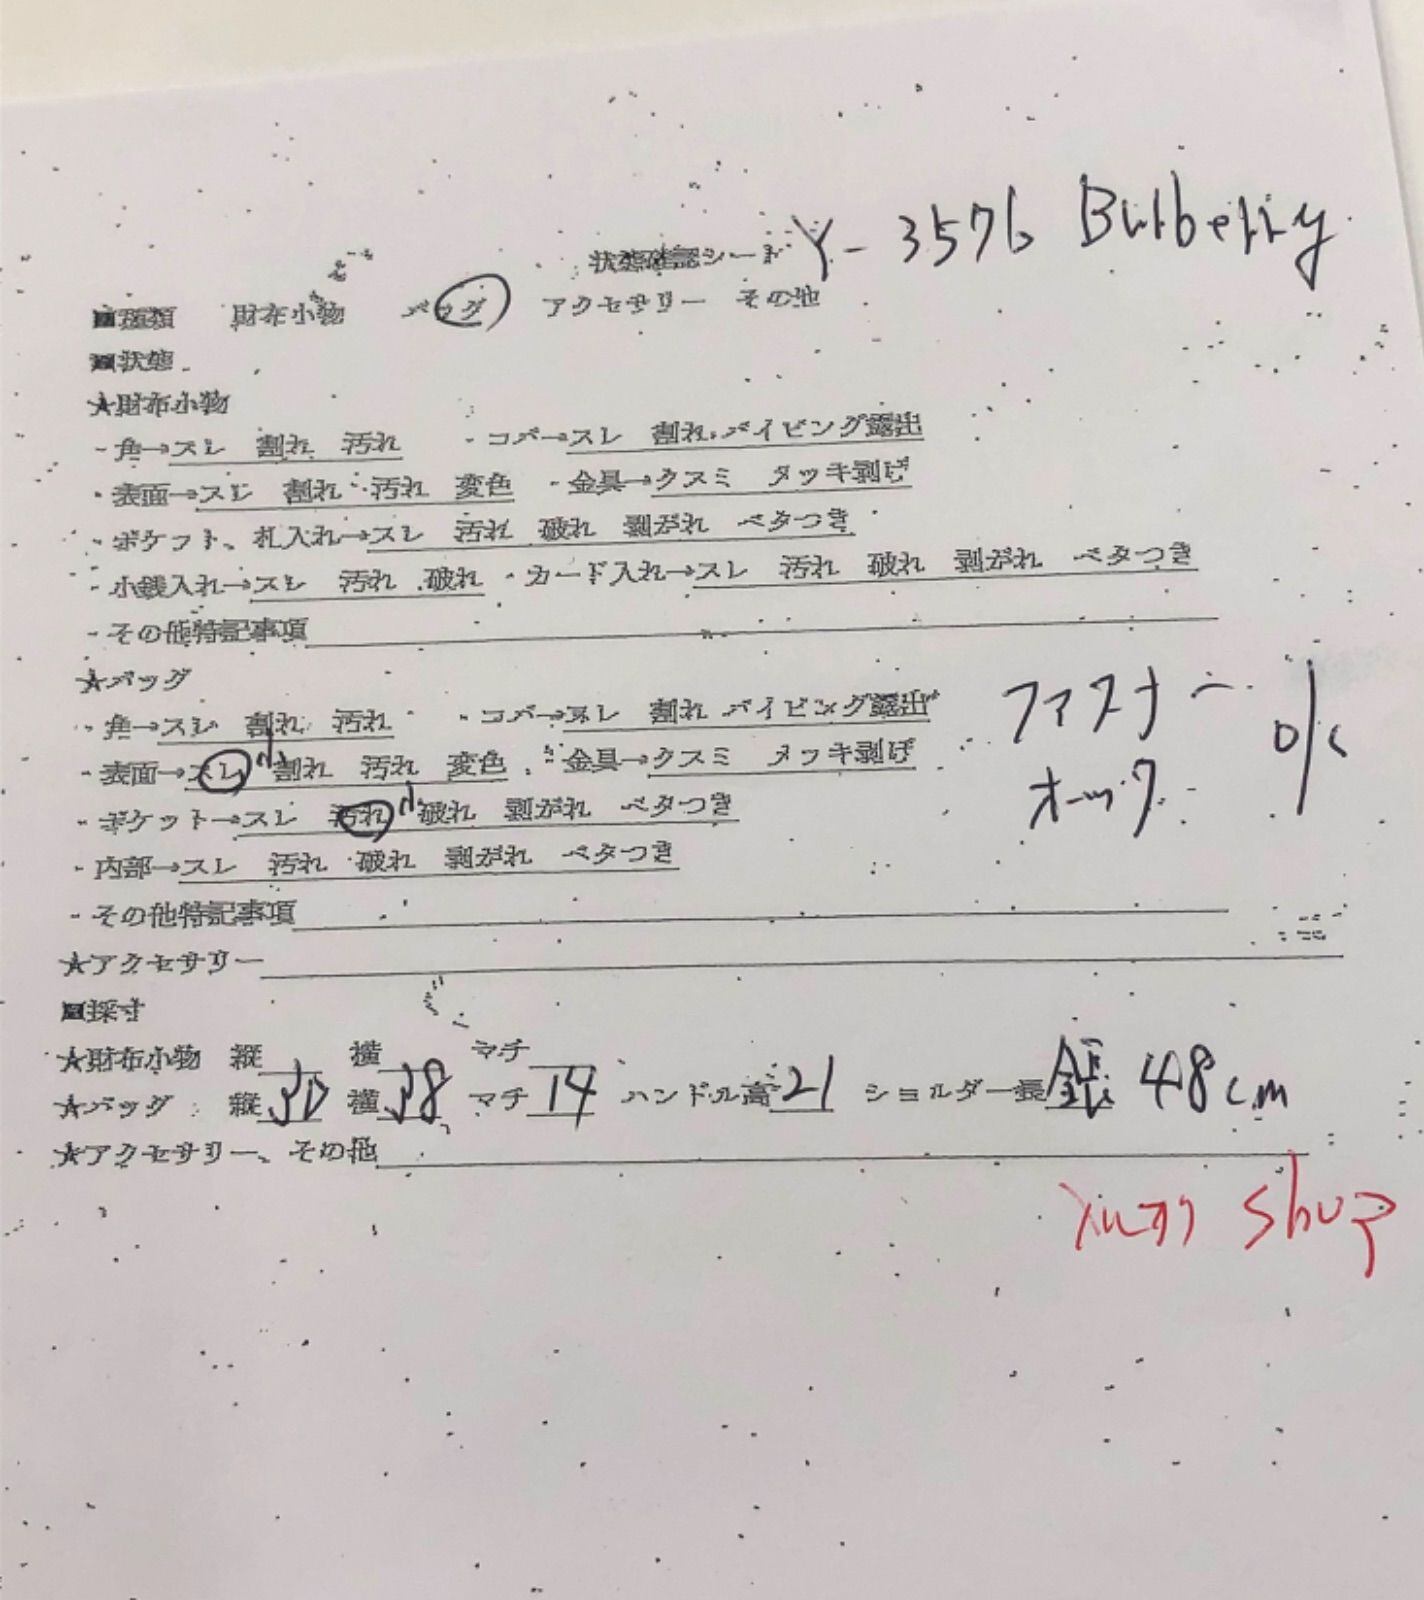 状態確認シート Y-3576 Burberry
■種類 財布小物 バッグ アクセサリー その他
■状態
★財布小物
・角→スレ 割れ 汚れ ・コバ→スレ 割れ パイピング露出
・表面→スレ 割れ 汚れ 変色 ・金具→クスミ メッキ剥げ
・ポケット、札入れ→スレ 汚れ 破れ 剥がれ ベタつき
・小銭入れ→スレ 汚れ 破れ ・カード入れ→スレ 汚れ 破れ 剥がれ ベタつき
・その他特記事項
★バッグ
・角→スレ 割れ 汚れ ・コバ→スレ 割れ パイピング露出
ファスナー
・表面→スレ 小 割れ 汚れ 変色 ・金具→クスミ メッキ剥げ
ホック
OK
・ポケット→スレ 汚れ 小 破れ 剥がれ ベタつき
・内部→スレ 汚れ 破れ 剥がれ ベタつき
・その他特記事項
★アクセサリー
■採寸
★財布小物 縦 横 マチ
★バッグ 縦30 横38 マチ14 ハンドル高21 ショルダー長 48cm
★アクセサリー、その他
メルカリ shop